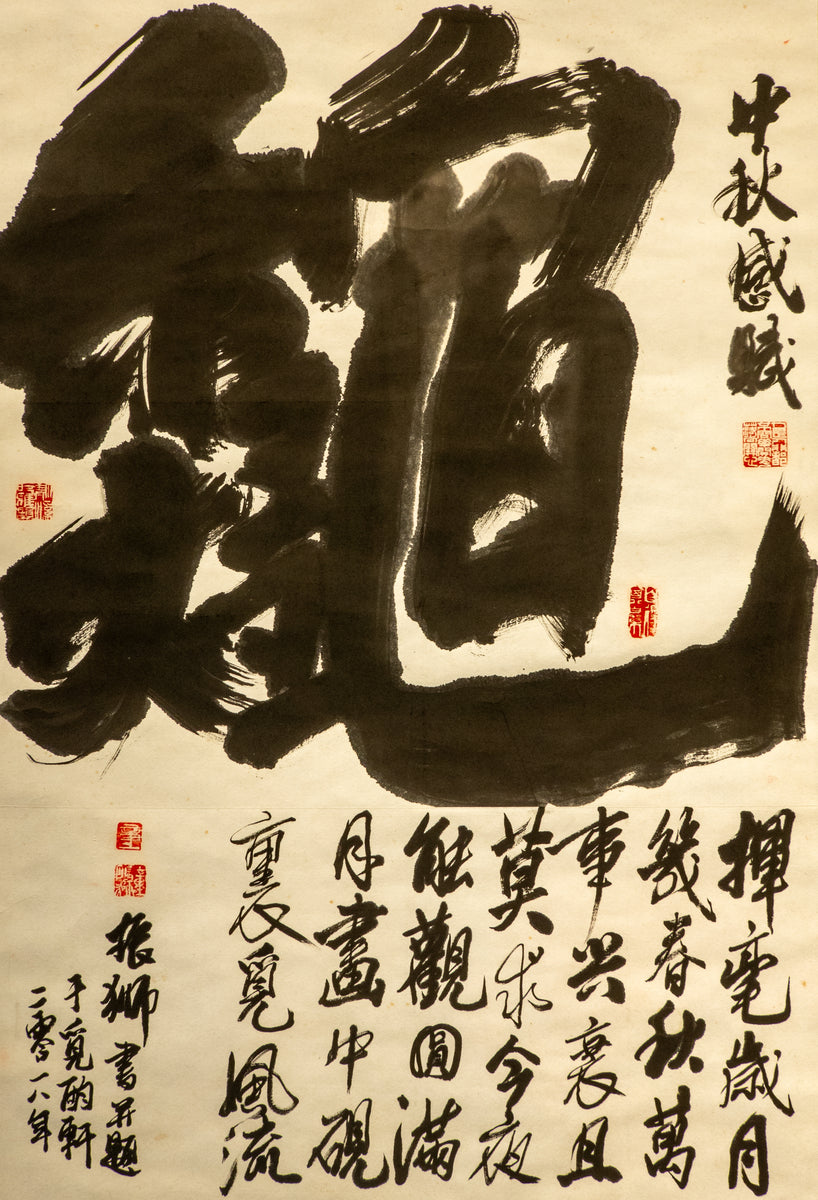 中秋感賦
揮毫歲月
幾春秋萬
事兴衰且
莫求今夜
能觀圓滿
月畫中硯
裏覓風流
振獅書并題
于覓酌軒
二零一八年